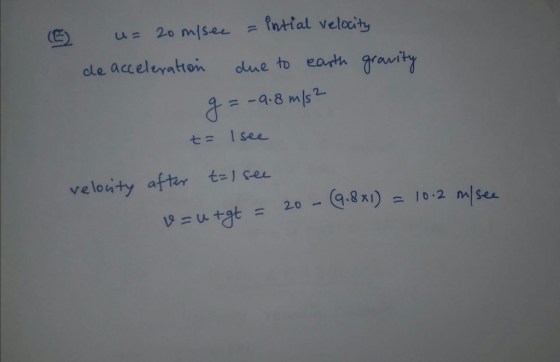 (E) u = 20 m/sec = intial velocity
de acceleration due to earth gravity
g = -9.8 m/s²
t = 1 sec
velocity after t=1 sec
v = u + gt = 20 - (9.8×1) = 10.2 m/sec